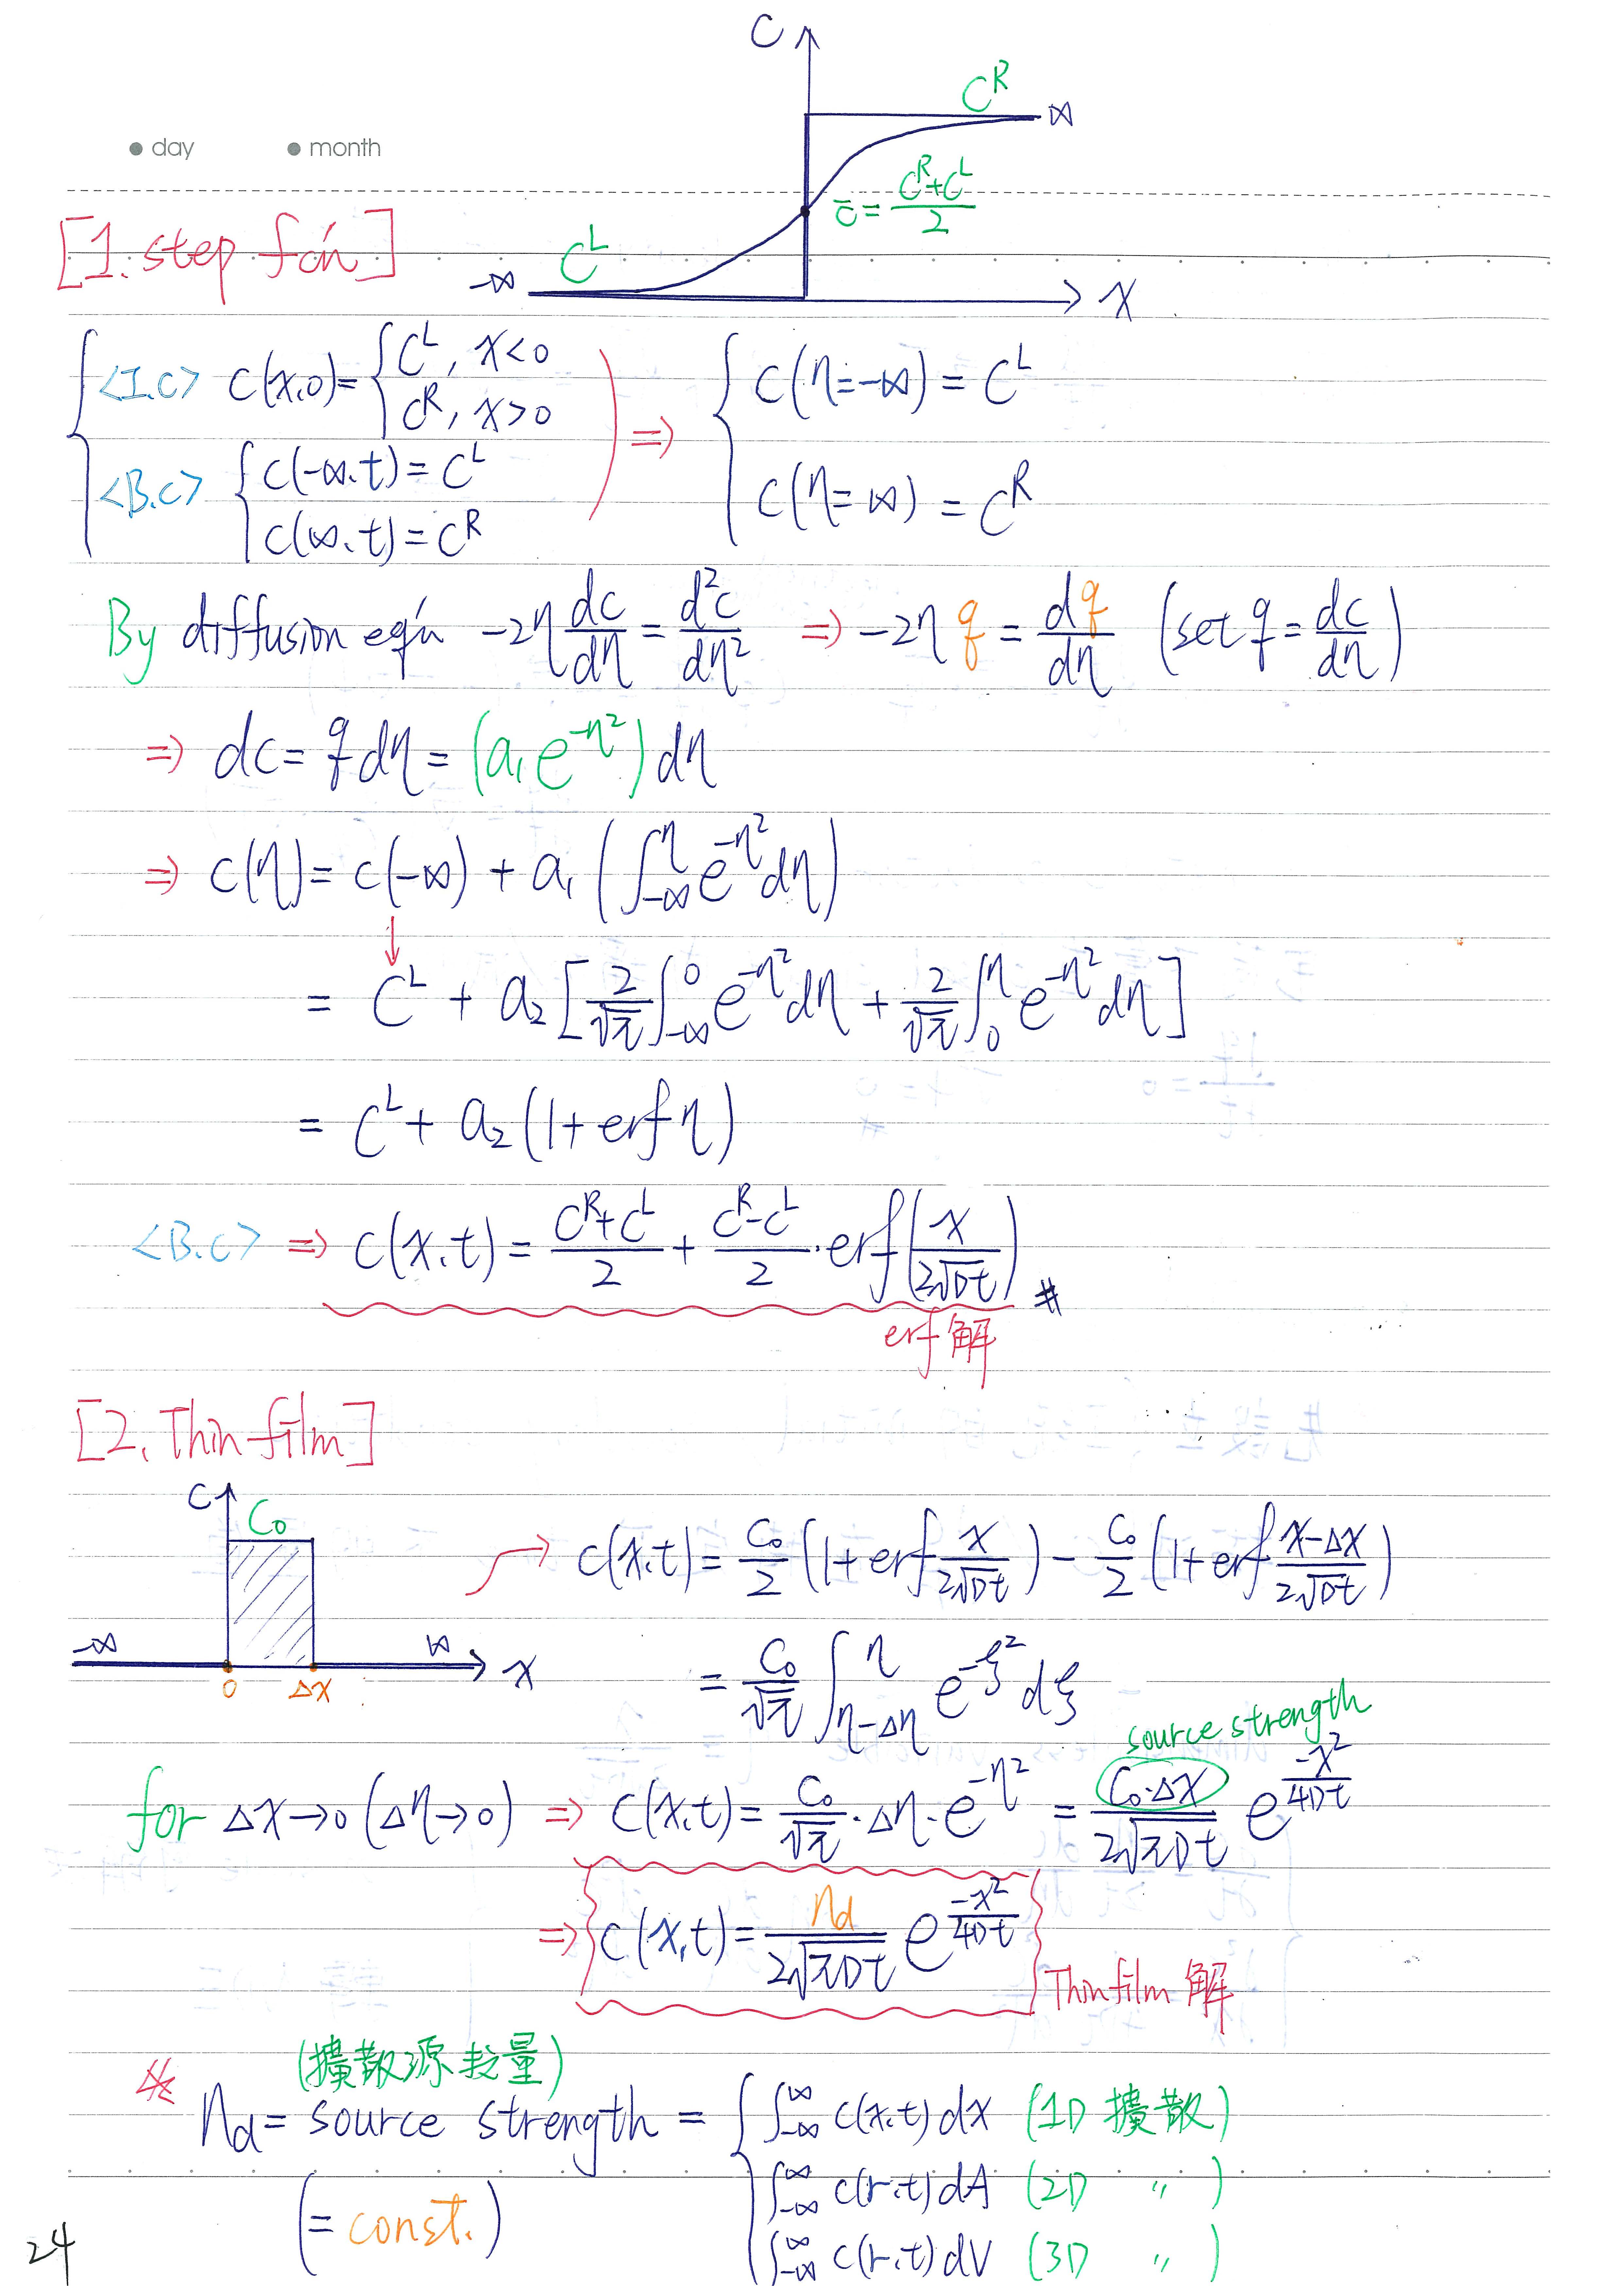 C
C^R
∞
• day • month
c̄ = (C^R+C^L)/2
[1. step fc'n]
C^L
-∞
x
<I.C> c(x,0) = { C^L, x<0
C^R, x>0
⇒ { c(η=-∞) = C^L
<B.C> { c(-∞,t) = C^L
c(∞,t) = C^R
c(η=∞) = C^R
By diffusion eq'n -2η dc/dη = d²c/dη² ⇒ -2η q = dq/dη (set q = dc/dη)
⇒ dc = q dη = (a₁e^{-η²}) dη
⇒ c(η) = c(-∞) + a₁ (∫_{-∞}^{η} e^{-η²} dη)
↓
= C^L + a₂ [ 2/√π ∫_{-∞}^{0} e^{-η²} dη + 2/√π ∫_{0}^{η} e^{-η²} dη ]
= C^L + a₂ (1 + erf η)
<B.C> ⇒ c(x,t) = (C^R+C^L)/2 + (C^R-C^L)/2 · erf(x/(2√Dt)) #
erf 解
[2. Thin film]
C
C₀
-∞
∞
x
0
Δx
→ c(x,t) = C₀/2 (1 + erf x/(2√Dt)) - C₀/2 (1 + erf (x-Δx)/(2√Dt))
= C₀/√π ∫_{η-Δη}^{η} e^{-ξ²} dξ
source strength
for Δx→0 (Δη→0) ⇒ c(x,t) = C₀/√π · Δη · e^{-η²} = C₀·Δx/(2√πDt) e^{-x²/4Dt}
⇒ c(x,t) = n_d/(2√πDt) e^{-x²/4Dt}
Thin film 解
(擴散源 量)
※ n_d = source strength = { ∫_{-∞}^{∞} c(x,t) dx (1D 擴散)
∫_{-∞}^{∞} c(r,t) dA (2D 〃)
(= const.)
∫_{-∞}^{∞} c(r,t) dV (3D 〃)
24